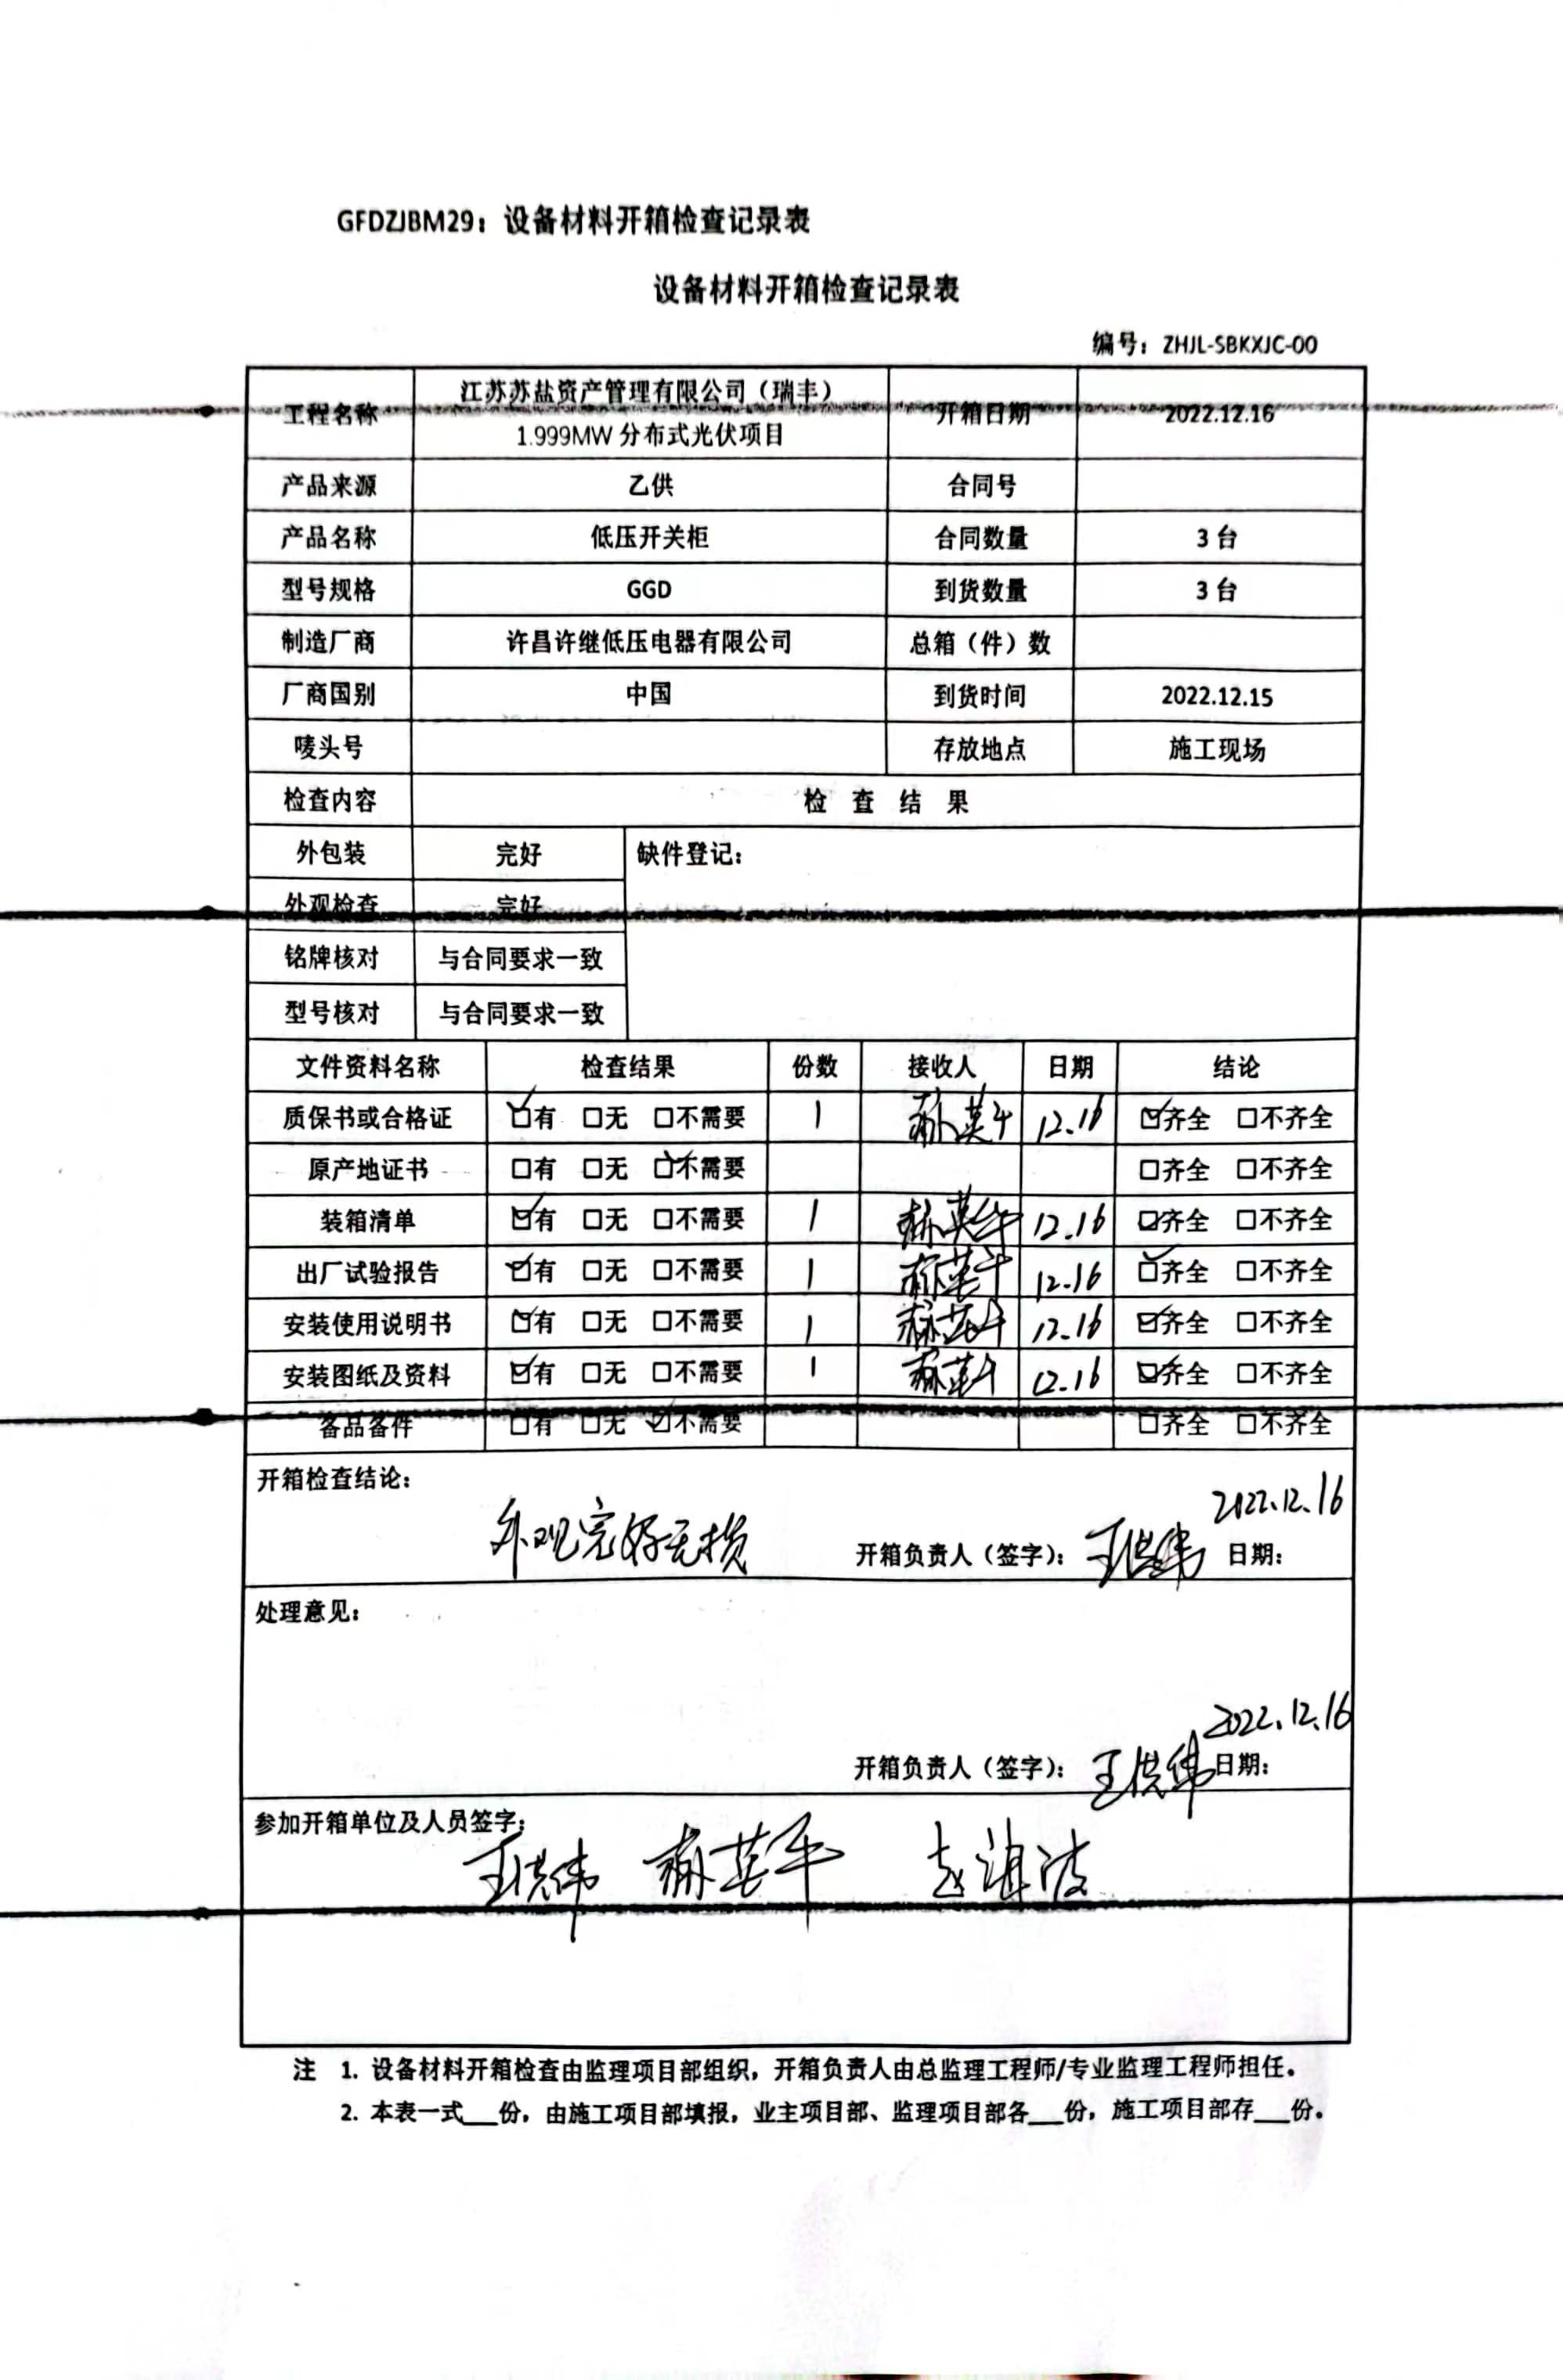 GFDZJBM29：设备材料开箱检查记录表
设备材料开箱检查记录表
编号：ZHJL-SBKXJC-00
工程名称 江苏苏盐资产管理有限公司（瑞丰）1.999MW 分布式光伏项目 开箱日期 2022.12.16
产品来源 乙供 合同号
产品名称 低压开关柜 合同数量 3 台
型号规格 GGD 到货数量 3 台
制造厂商 许昌许继低压电器有限公司 总箱（件）数
厂商国别 中国 到货时间 2022.12.15
唛头号 存放地点 施工现场
检查内容 检 查 结 果
外包装 完好 缺件登记：
外观检查 完好
铭牌核对 与合同要求一致
型号核对 与合同要求一致
文件资料名称 检查结果 份数 接收人 日期 结论
质保书或合格证 ☑有 □无 □不需要 1 12.16 ☑齐全 □不齐全
原产地证书 □有 □无 ☑不需要 □齐全 □不齐全
装箱清单 ☑有 □无 □不需要 1 12.16 ☑齐全 □不齐全
出厂试验报告 ☑有 □无 □不需要 1 12.16 ☑齐全 □不齐全
安装使用说明书 ☑有 □无 □不需要 1 12.16 ☑齐全 □不齐全
安装图纸及资料 ☑有 □无 □不需要 1 12.16 ☑齐全 □不齐全
备品备件 □有 □无 ☑不需要 □齐全 □不齐全
开箱检查结论：
外观完好无损
2022.12.16
开箱负责人（签字）： 王洪伟 日期：
处理意见：
2022.12.16
开箱负责人（签字）： 王洪伟 日期：
参加开箱单位及人员签字：
王洪伟
注 1. 设备材料开箱检查由监理项目部组织，开箱负责人由总监理工程师/专业监理工程师担任。
2. 本表一式___份，由施工项目部填报，业主项目部、监理项目部各___份，施工项目部存___份。